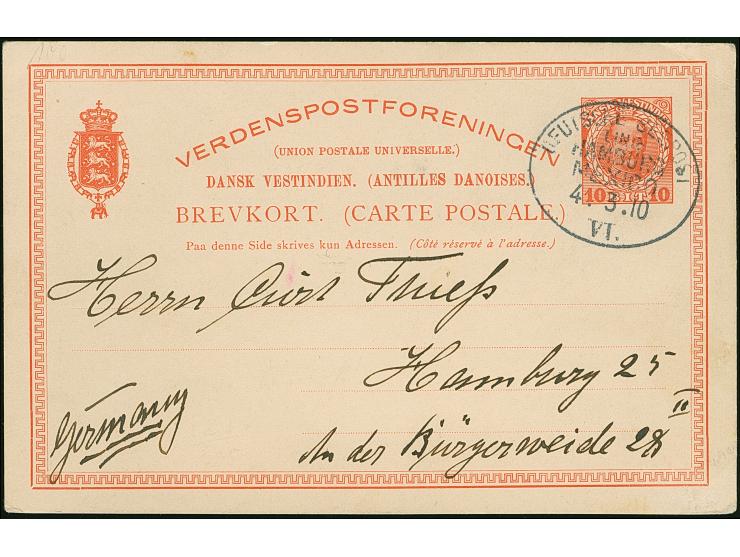 VERDENSPOSTFORENINGEN
(UNION POSTALE UNIVERSELLE.)
DANSK VESTINDIEN. (ANTILLES DANOISES.)
BREVKORT. (CARTE POSTALE.)
Paa denne Side skrives kun Adressen. (Côté réservé à l'adresse.)
10 BIT 10
DEUTSCHE SEEPOST
LINIE
HAMBURG
MEXICO
4. 3. 10
VI.
Herrn Curt Thieß
Hamburg 25
Germany
An der Bürgerweide 28 II